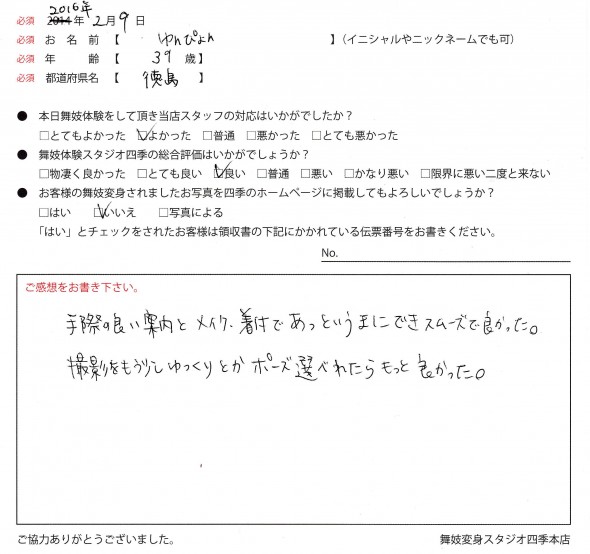 2016年
必須 2014年2月9日
必須 お名前【 ゆんぴょん 】(イニシャルやニックネームでも可)
必須 年齢【 39 歳】
必須 都道府県名【 徳島 】
● 本日舞妓体験をして頂き当店スタッフの対応はいかがでしたか?
□とてもよかった ☑よかった □普通 □悪かった □とても悪かった
● 舞妓体験スタジオ四季の総合評価はいかがでしょうか?
□物凄く良かった □とても良い ☑良い □普通 □悪い □かなり悪い □限界に悪い二度と来ない
● お客様の舞妓変身されましたお写真を四季のホームページに掲載してもよろしいでしょうか?
□はい ☑いいえ □写真による
「はい」とチェックをされたお客様は領収書の下記にかかれている伝票番号をお書きください。
No.
ご感想をお書き下さい。
手際の良い案内とメイク、着付であっというまにできスムーズで良かった。
撮影をもう少しゆっくりとかポーズ選べれたらもっと良かった。
ご協力ありがとうございました。 舞妓変身スタジオ四季本店